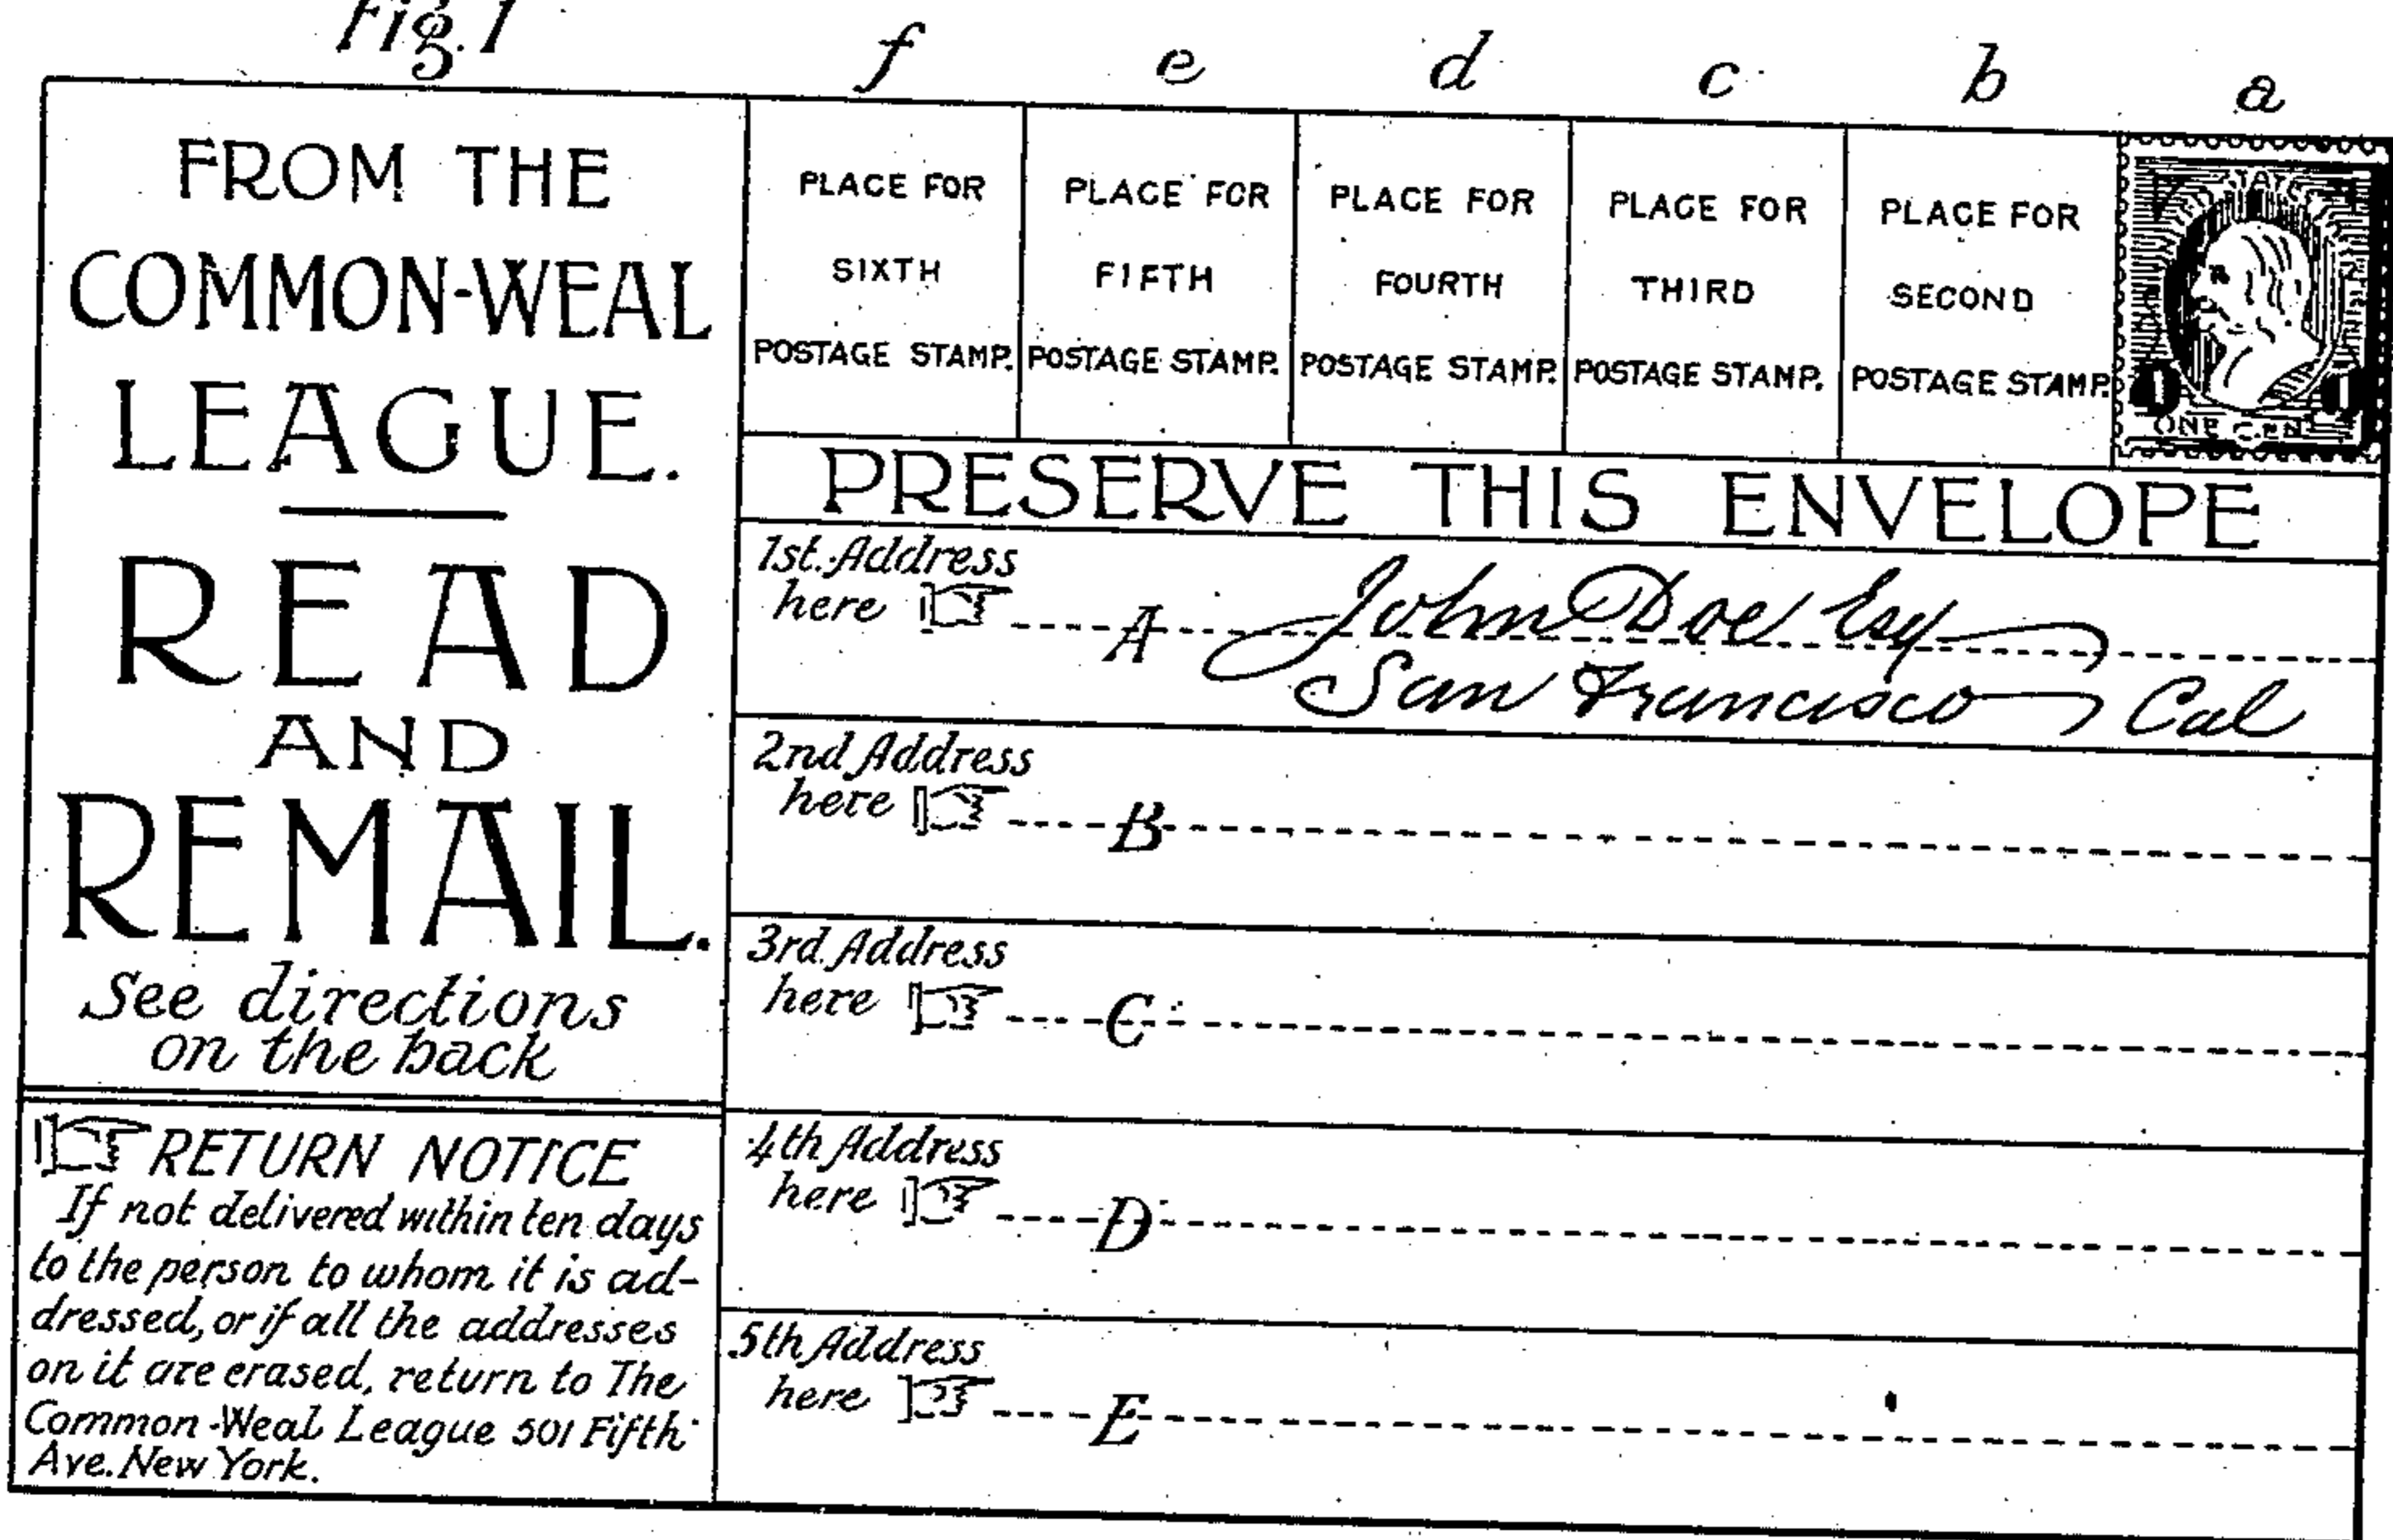 Fig. 1
f e d c b a
FROM THE
COMMON-WEAL
LEAGUE.
READ
AND
REMAIL.
See directions
on the back
RETURN NOTICE
If not delivered within ten days
to the person to whom it is ad-
dressed, or if all the addresses
on it are erased, return to The
Common-Weal League 501 Fifth
Ave. New York.
PLACE FOR
SIXTH
POSTAGE STAMP.
PLACE FOR
FIFTH
POSTAGE STAMP.
PLACE FOR
FOURTH
POSTAGE STAMP.
PLACE FOR
THIRD
POSTAGE STAMP.
PLACE FOR
SECOND
POSTAGE STAMP.
1 1
ONE CENT
PRESERVE THIS ENVELOPE
1st. Address
here A John Doe Esq
San Francisco Cal
2nd Address
here B
3rd. Address
here C
4th Address
here D
5th Address
here E